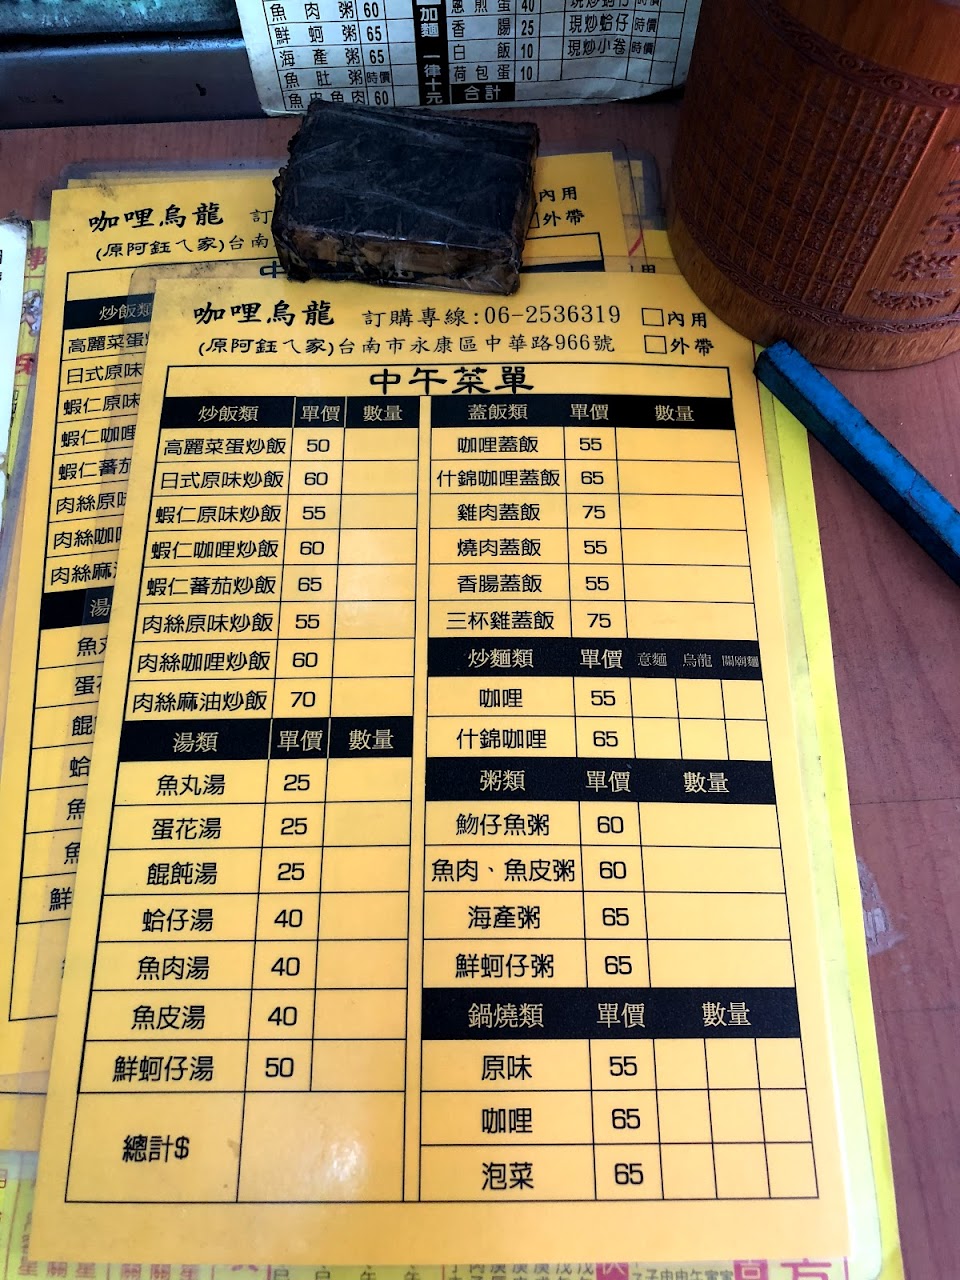 魚肉粥 60
鮮蚵粥 65
海產粥 65
魚肚粥 時價
魚皮魚肉 60
加麵 一律十元
蔥煎蛋 40
香腸 25
白飯 10
荷包蛋 10
合計
現炒蚵仔 時價
現炒蛤仔 時價
現炒小卷 時價
咖哩烏龍 訂
內用
(原阿鈺ㄟ家)台南
外帶
炒飯類
高麗菜蛋炒
日式原味
蝦仁原味
蝦仁咖哩
蝦仁蕃茄
肉絲原味
肉絲咖哩
肉絲麻油
湯
魚丸
蛋花
餛
蛤
魚
魚
鮮
咖哩烏龍 訂購專線:06-2536319 □內用
(原阿鈺ㄟ家)台南市永康區中華路966號 □外帶
中午菜單
炒飯類 單價 數量
高麗菜蛋炒飯 50
日式原味炒飯 60
蝦仁原味炒飯 55
蝦仁咖哩炒飯 60
蝦仁蕃茄炒飯 65
肉絲原味炒飯 55
肉絲咖哩炒飯 60
肉絲麻油炒飯 70
湯類 單價 數量
魚丸湯 25
蛋花湯 25
餛飩湯 25
蛤仔湯 40
魚肉湯 40
魚皮湯 40
鮮蚵仔湯 50
總計$
蓋飯類 單價 數量
咖哩蓋飯 55
什錦咖哩蓋飯 65
雞肉蓋飯 75
燒肉蓋飯 55
香腸蓋飯 55
三杯雞蓋飯 75
炒麵類 單價 意麵 烏龍 關廟麵
咖哩 55
什錦咖哩 65
粥類 單價 數量
魩仔魚粥 60
魚肉、魚皮粥 60
海產粥 65
鮮蚵仔粥 65
鍋燒類 單價 數量
原味 55
咖哩 65
泡菜 65